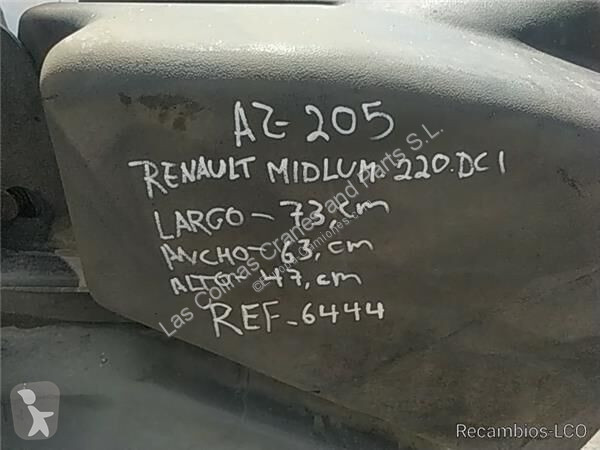 AZ-205
RENAULT MIDLUM 220.DCI
LARGO-73,cm
ANCHO-63,cm
ALTO-47,cm
REF-6444
Las Colinas Cranes and Parts S.L.
Recambios-LCO